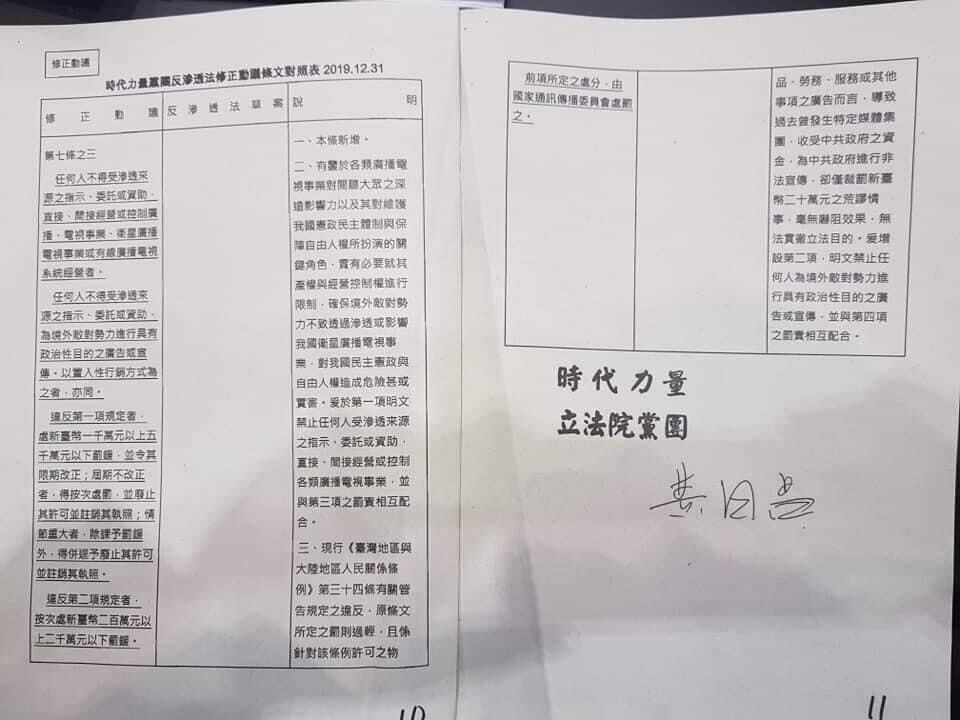 修正動議
時代力量黨團反滲透法修正動議條文對照表 2019.12.31
修正動議
反滲透法草案
說明
第七條之三
任何人不得受滲透來
源之指示、委託或資助,
直接、間接經營或控制廣
播、電視事業、衛星廣播
電視事業或有線廣播電視
系統經營者。
任何人不得受滲透來
源之指示、委託或資助,
為境外敵對勢力進行具有
政治性目的之廣告或宣
傳。以置入性行銷方式為
之者,亦同。
違反第一項規定者,
處新臺幣一千萬元以上五
千萬元以下罰鍰,並令其
限期改正;屆期不改正
者,得按次處罰,並廢止
其許可並註銷其執照;情
節重大者,除課予罰鍰
外,得併逕予廢止其許可
並註銷其執照。
違反第二項規定者,
按次處新臺幣二百萬元以
上二千萬元以下罰鍰。
一、本條新增。
二、有鑒於各類廣播電
視事業對閱聽大眾之深
遠影響力以及其對維護
我國憲政民主體制與保
障自由人權所扮演的關
鍵角色,實有必要就其
產權與經營控制權進行
限制,確保境外敵對勢
力不致透過滲透或影響
我國衛星廣播電視事
業,對我國民主憲政與
自由人權造成危險甚或
實害。爰於第一項明文
禁止任何人受滲透來源
之指示、委託或資助,
直接、間接經營或控制
各類廣播電視事業,並
與第三項之罰責相互配
合。
三、現行《臺灣地區與
大陸地區人民關係條
例》第三十四條有關管
告規定之違反,原條文
所定之罰則過輕,且係
針對該條例許可之物
10
前項所定之處分,由
國家通訊傳播委員會處罰
之。
品、勞務、服務或其他
事項之廣告而言,導致
過去曾發生特定媒體集
團,收受中共政府之資
金,為中共政府進行非
法宣傳,卻僅裁罰新臺
幣二十萬元之荒謬情
事,毫無嚇阻效果,無
法貫徹立法目的。爰增
設第二項,明文禁止任
何人為境外敵對勢力進
行具有政治性目的之廣
告或宣傳,並與第四項
之罰責相互配合。
時代力量
立法院黨團
11